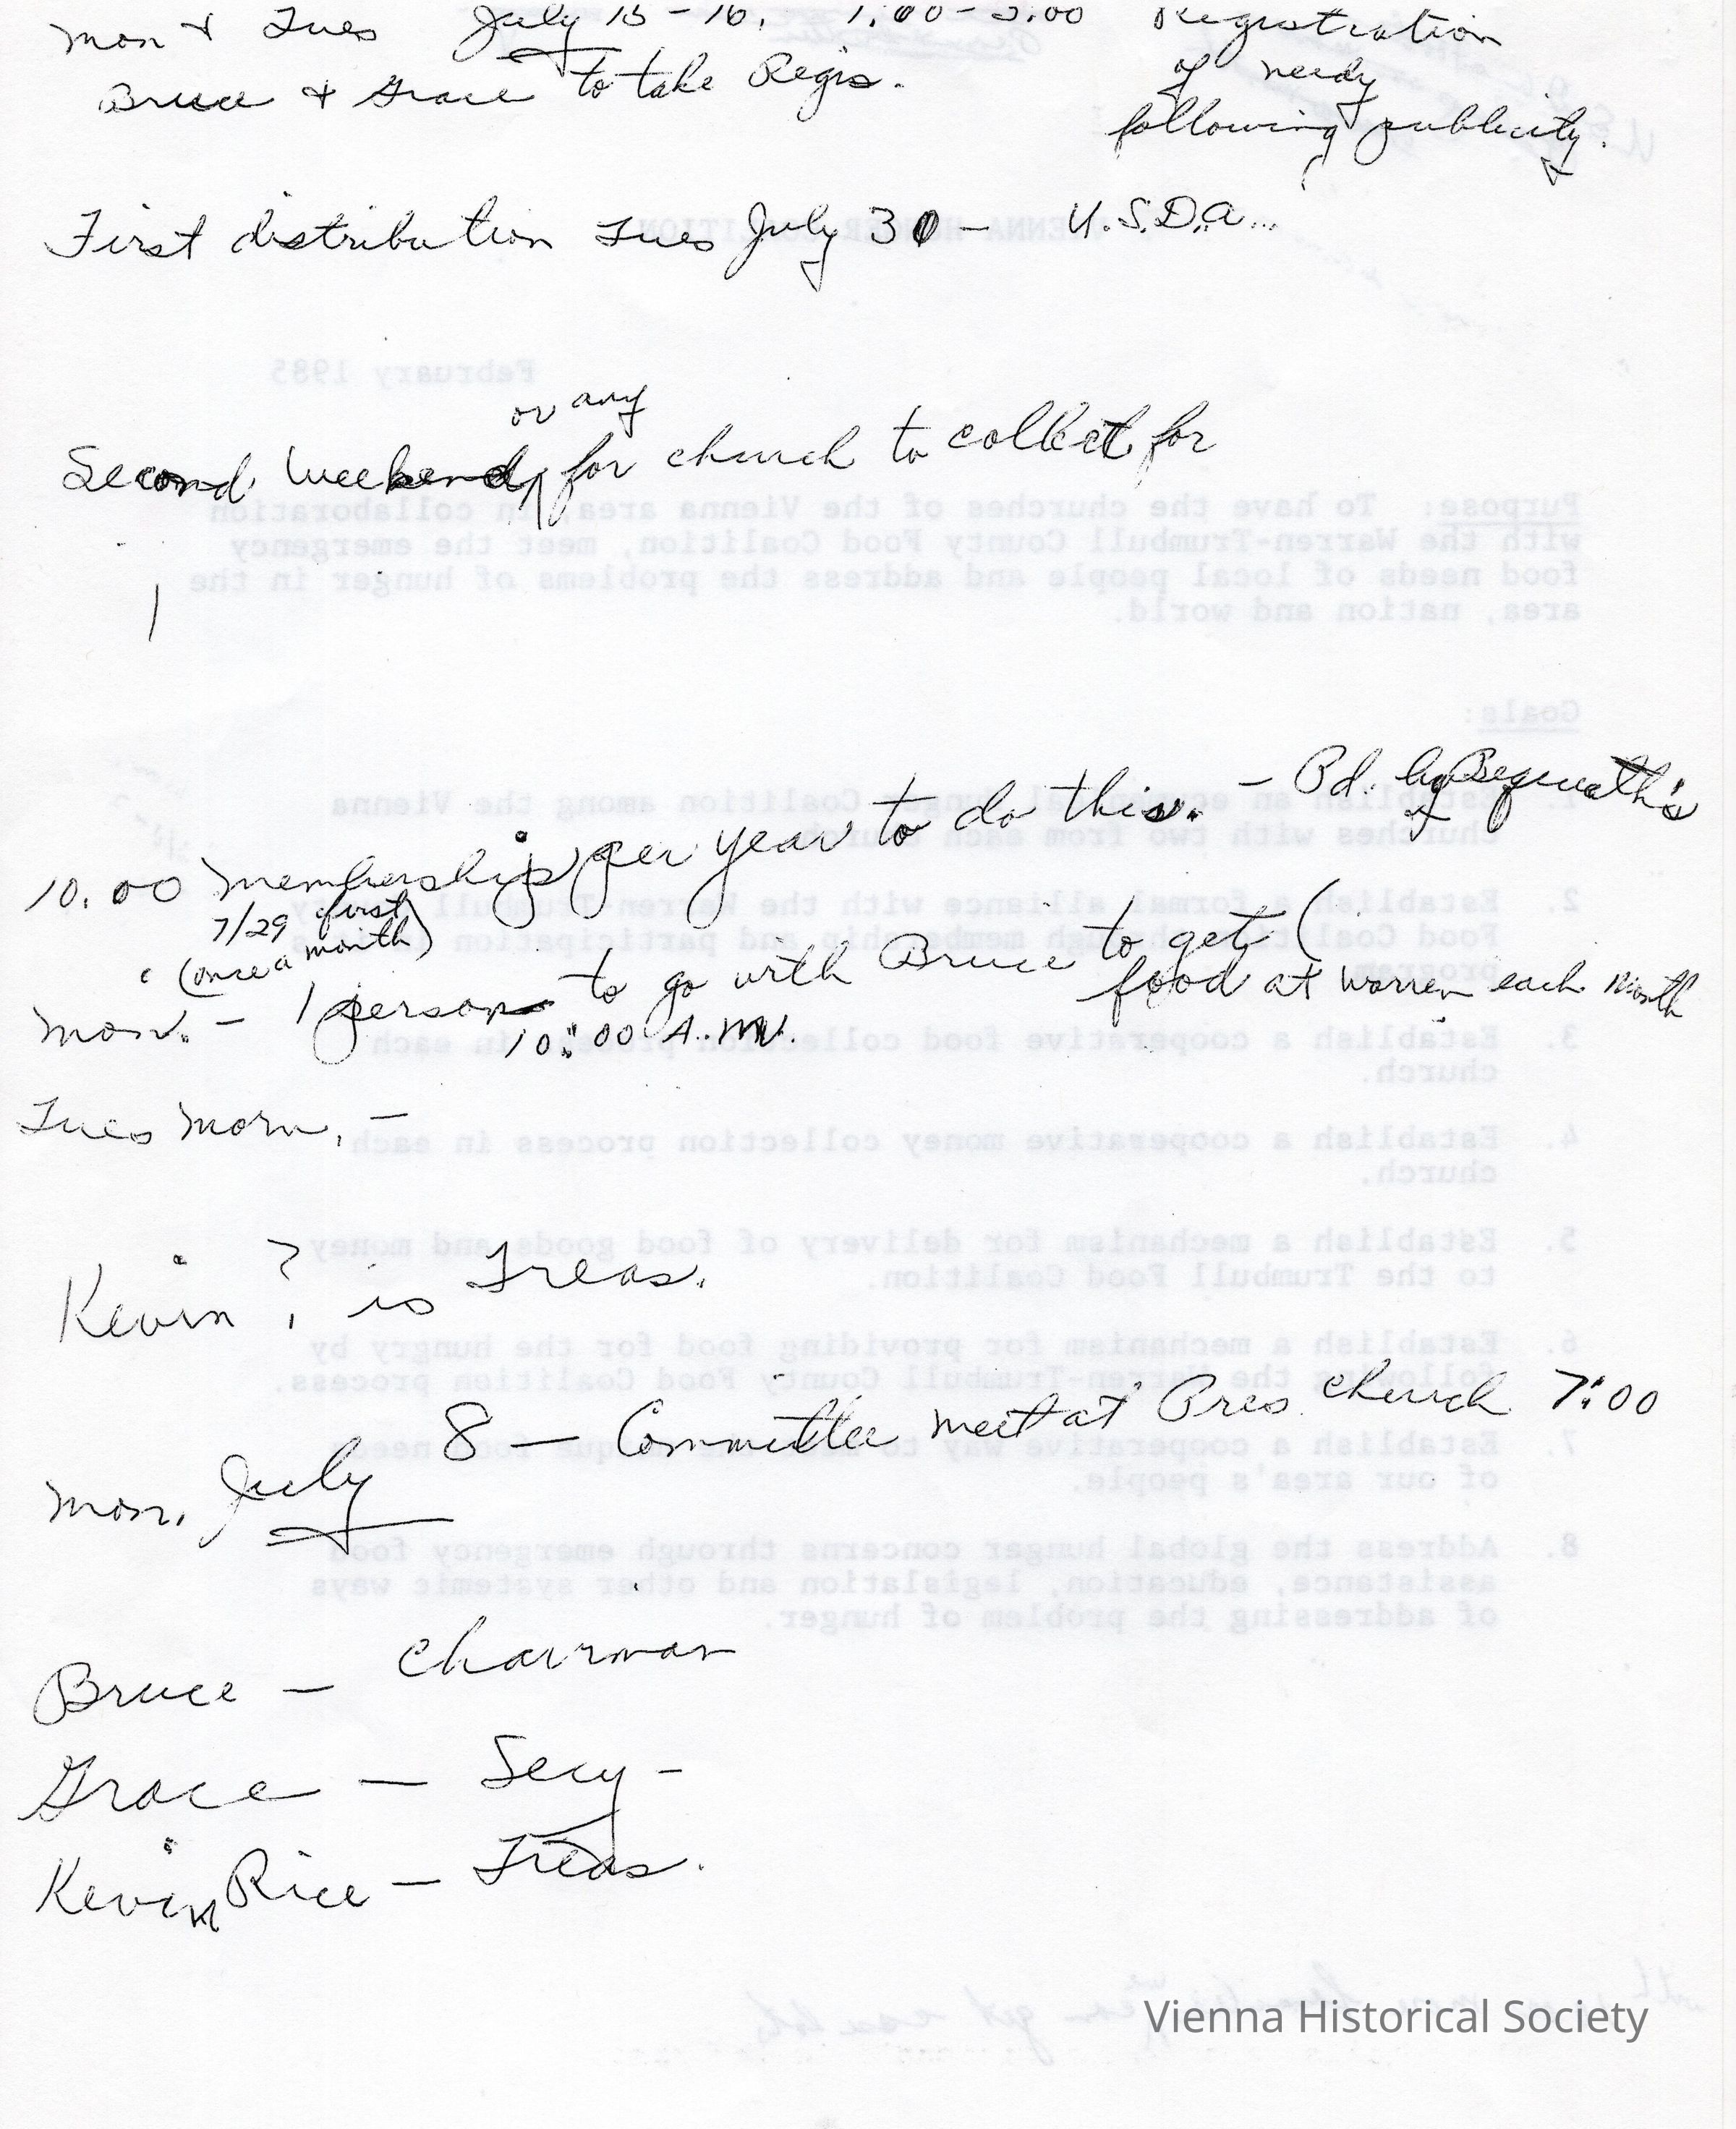 Mon & Tues July 15-16. 1:00-3:00 Registration
Bruce & Grace to take Regis. of needy
following publicity.
First distribution Tues July 30 - U.S.D.A...
or any
Second Weekend, for church to collect for
10.00 membership per year to do this. - Pd. by Bequeath's
7/29 first
(once a month)
Mon. - 1 person to go with Bruce to get (
food at Warren each month
10:00 A.M.
Tues Morn. -
Kevin ? is Treas.
Mon. July 8 - Committee meet at Pres. Church 7:00
Bruce - Chairman
Grace - Secy -
Kevin Rice - Treas.
VIENNA HUNGER COALITION
February 1985
Purpose: To have the churches of the Vienna area, in collaboration
with the Warren-Trumbull County Food Coalition, meet the emergency
food needs of local people and address the problems of hunger in the
area, nation and world.
Goals:
1. Establish an Hunger Coalition among the Vienna
churches with two from each church.
2. Establish a formal alliance with the Warren-Trumbull County
Food Coalition through membership and participation in
program.
3. Establish a cooperative food collection process in each
church.
4. Establish a cooperative money collection process in each
church.
5. Establish a mechanism for delivery of food goods and money
to the Trumbull Food Coalition.
6. Establish a mechanism for providing food for the hungry by
following the Warren-Trumbull County Food Coalition process.
7. Establish a cooperative way to food needs
of our area's people.
8. Address the global hunger concerns through emergency food
assistance, education, legislation and other systemic ways
of addressing the problem of hunger.
Vienna Historical Society